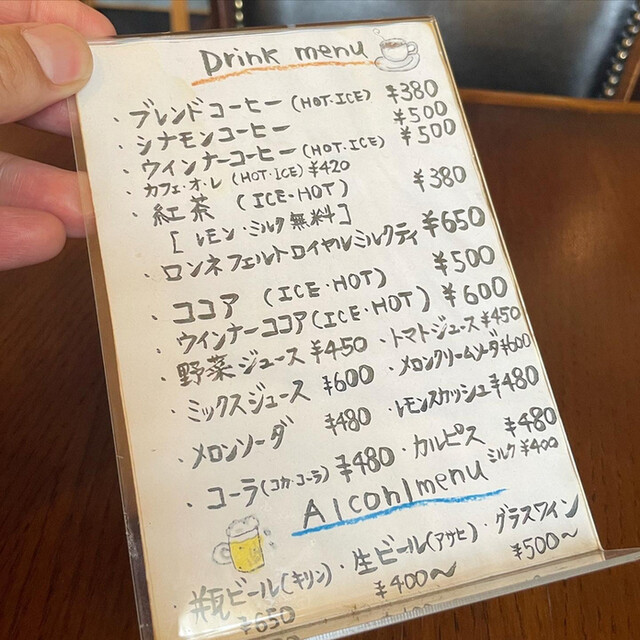 Drink menu
・ブレンドコーヒー(HOT・ICE) ¥380
・シナモンコーヒー ¥500
・ウインナーコーヒー(HOT・ICE) ¥500
・カフェ・オ・レ(HOT・ICE)¥420
・紅茶(ICE・HOT) ¥380
[レモン・ミルク無料]
・ロンネフェルトロイヤルミルクティ ¥650
・ココア(ICE・HOT) ¥500
・ウインナーココア(ICE・HOT) ¥600
・野菜ジュース ¥450 ・トマトジュース¥450
・ミックスジュース ¥600 ・メロンクリームソーダ¥600
・メロンソーダ ¥480 ・レモンスカッシュ¥480
・コーラ(コカ・コーラ) ¥480 ・カルピス ¥480
ミルク ¥400
Alcohlmenu
・瓶ビール(キリン) ・生ビール(アサヒ) ・グラスワイン
¥650 ¥400〜 ¥500〜